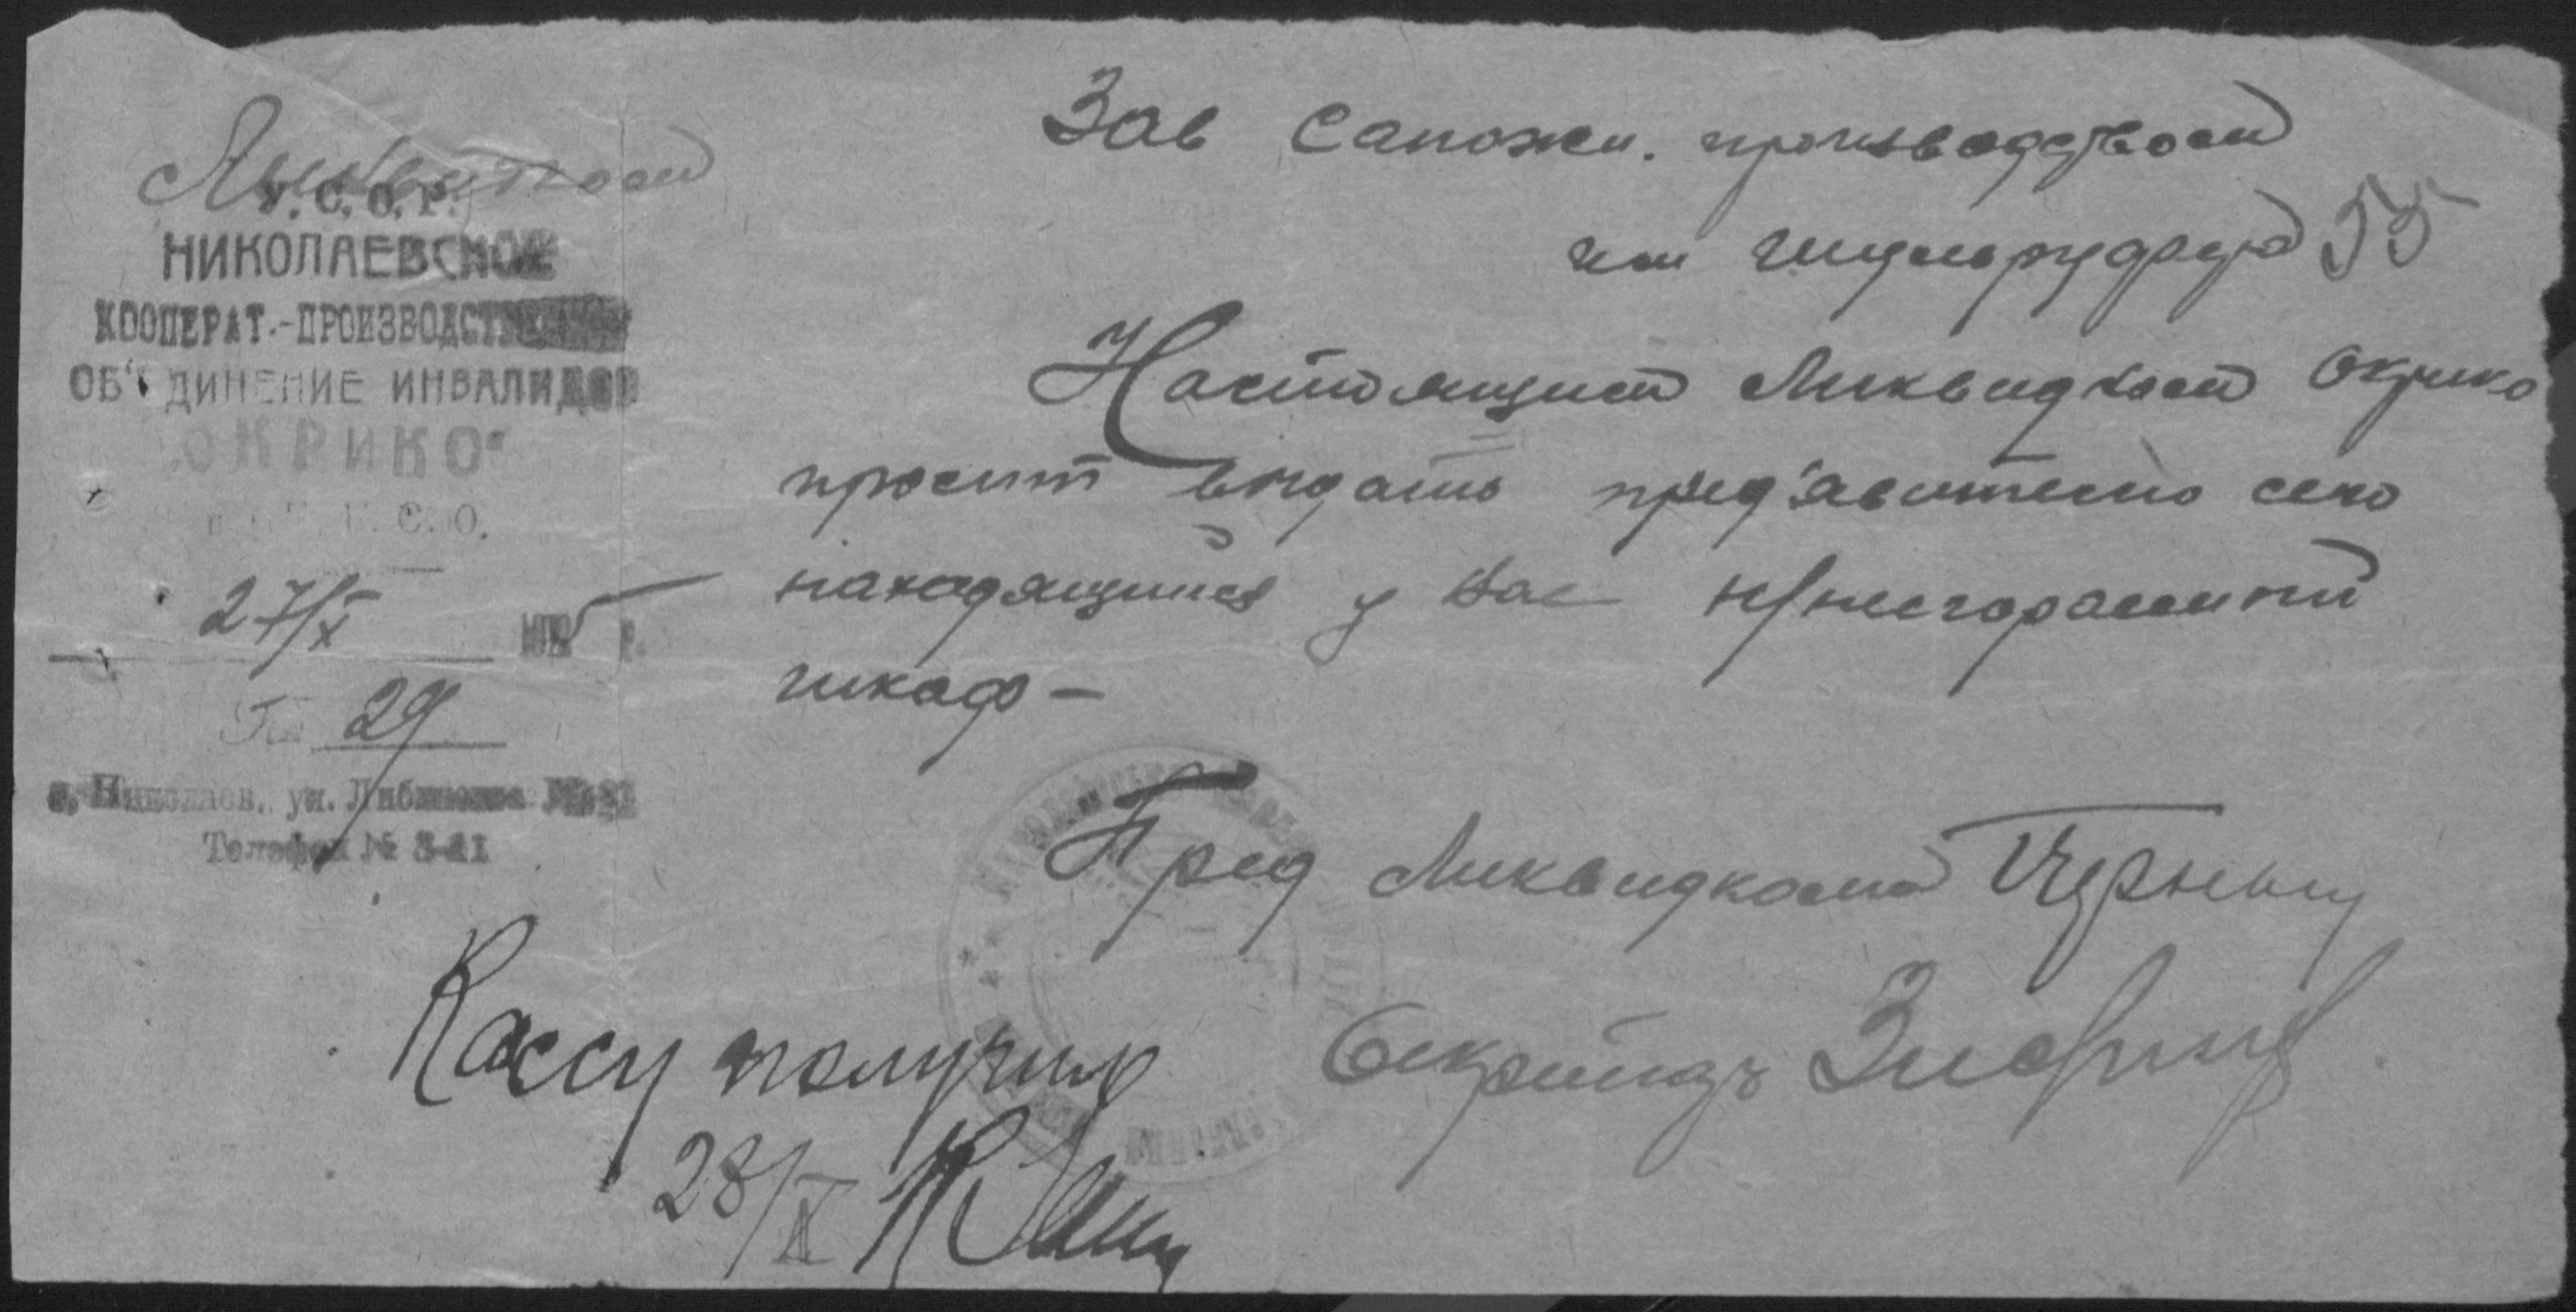 Ликвидком
У.С.О.Р.
НИКОЛАЕВСКОЕ
КООПЕРАТ.-ПРОИЗВОДСТВЕННОЕ
ОБ'ЕДИНЕНИЕ ИНВАЛИДОВ
„ОКРИКО“
С.О.
27/X 1925 г.
№ 29
г. Николаев, ул. Либкнехта
Телефон № 3-21
Зав Сапожн. производством
55
Настоящим Ликвидком Окрико
просит выдать пред'явителю сего
находящийся у Вас н/несгораемый
шкаф —
Пред Ликвидкома
Секретарь
Кассу получил
28/X